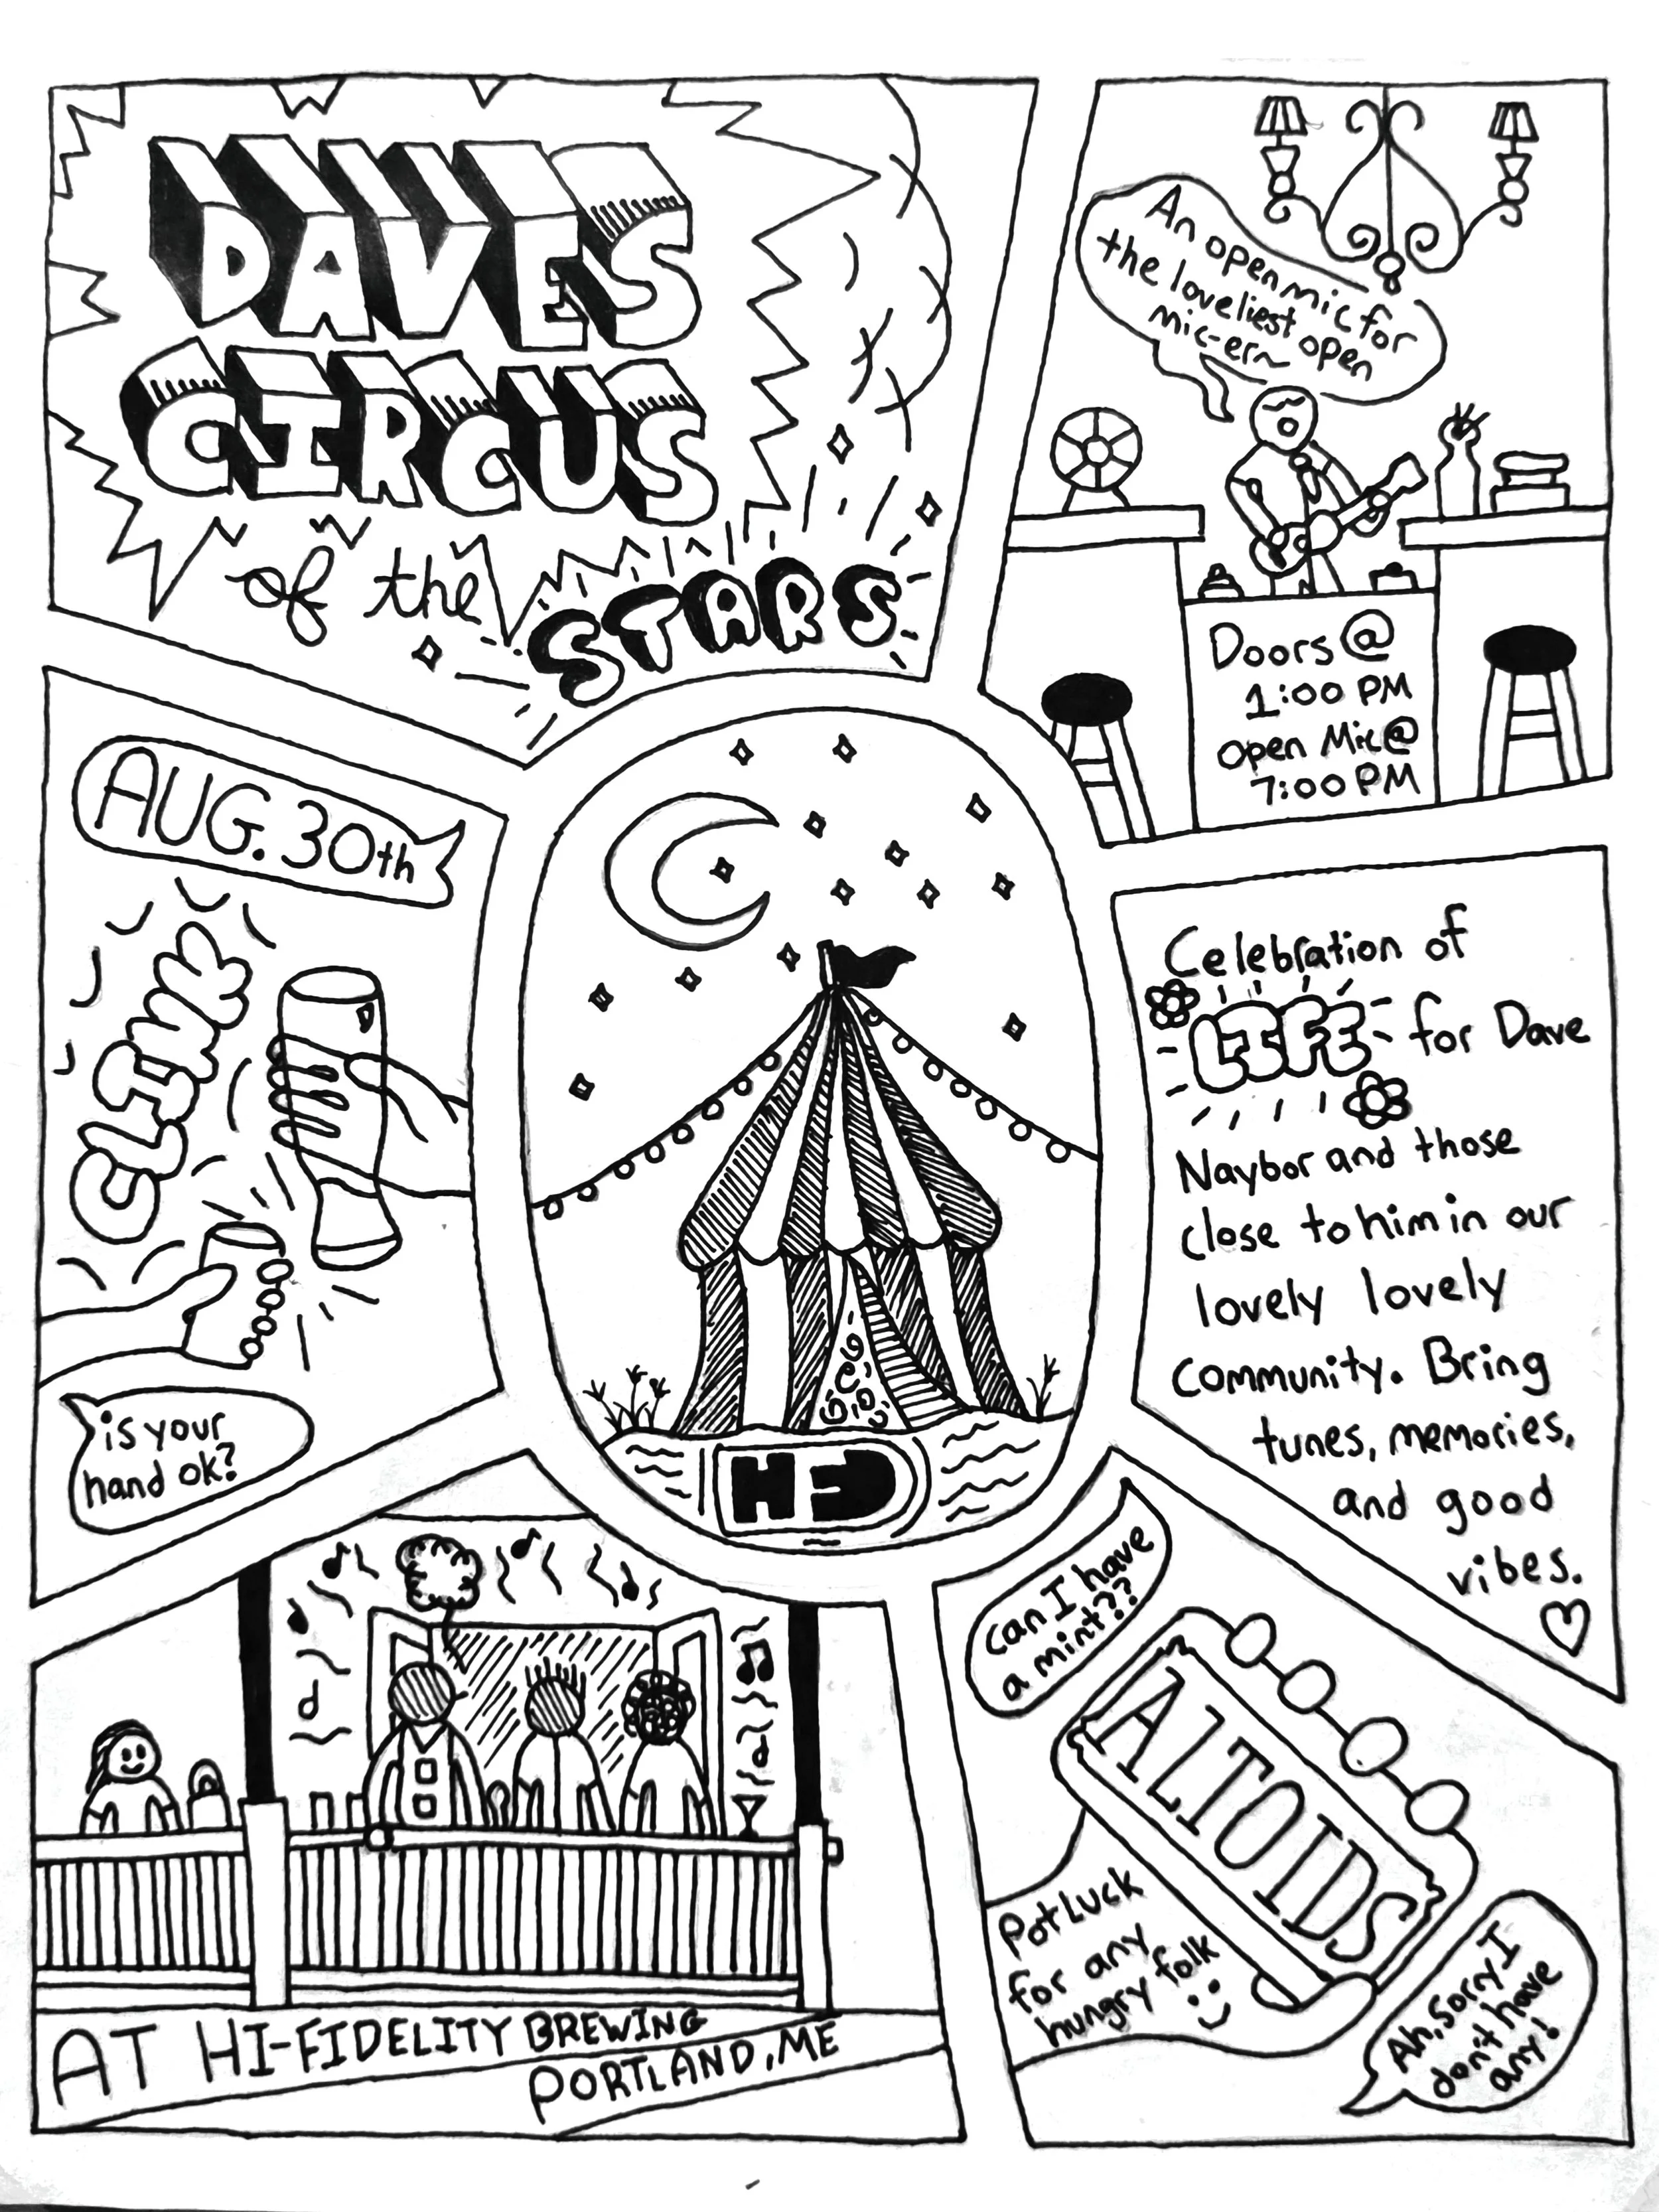 DAVES
CIRCUS
of the
STARS
An open mic for
the loveliest open
mic-er~
Doors @
1:00 PM
Open Mic @
7:00 PM
AUG. 30th
CLINK
is your
hand ok?
HF
Celebration of
LIFE for Dave
Naybor and those
close to him in our
lovely lovely
community. Bring
tunes, memories,
and good
vibes.
AT HI-FIDELITY BREWING
PORTLAND, ME
can I have
a mint??
ALTOIDS
Potluck
for any
hungry folk
Ah, sorry I
don't have
any!